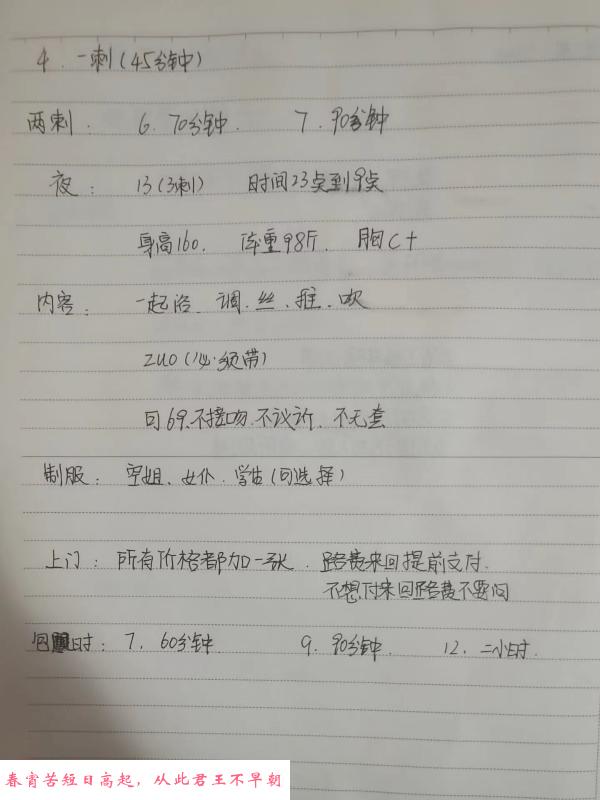 4. 一刺(45分钟)
两刺: 6. 70分钟. 7. 90分钟
夜: 13(3刺) 时间23点到9点
身高160. 体重98斤. 胸C+
内容: 一起浴、调、丝、推、吹
ZUO(必须带)
可69.不接吻.不议价.不无套
制服: 空姐、女仆.学生(可选择)
上门: 所有价格都加一张. 路费来回提前支付.
不想付来回路费不要问
时: 7. 60分钟. 9. 90分钟. 12. 二小时.
春宵苦短日高起，从此君王不早朝